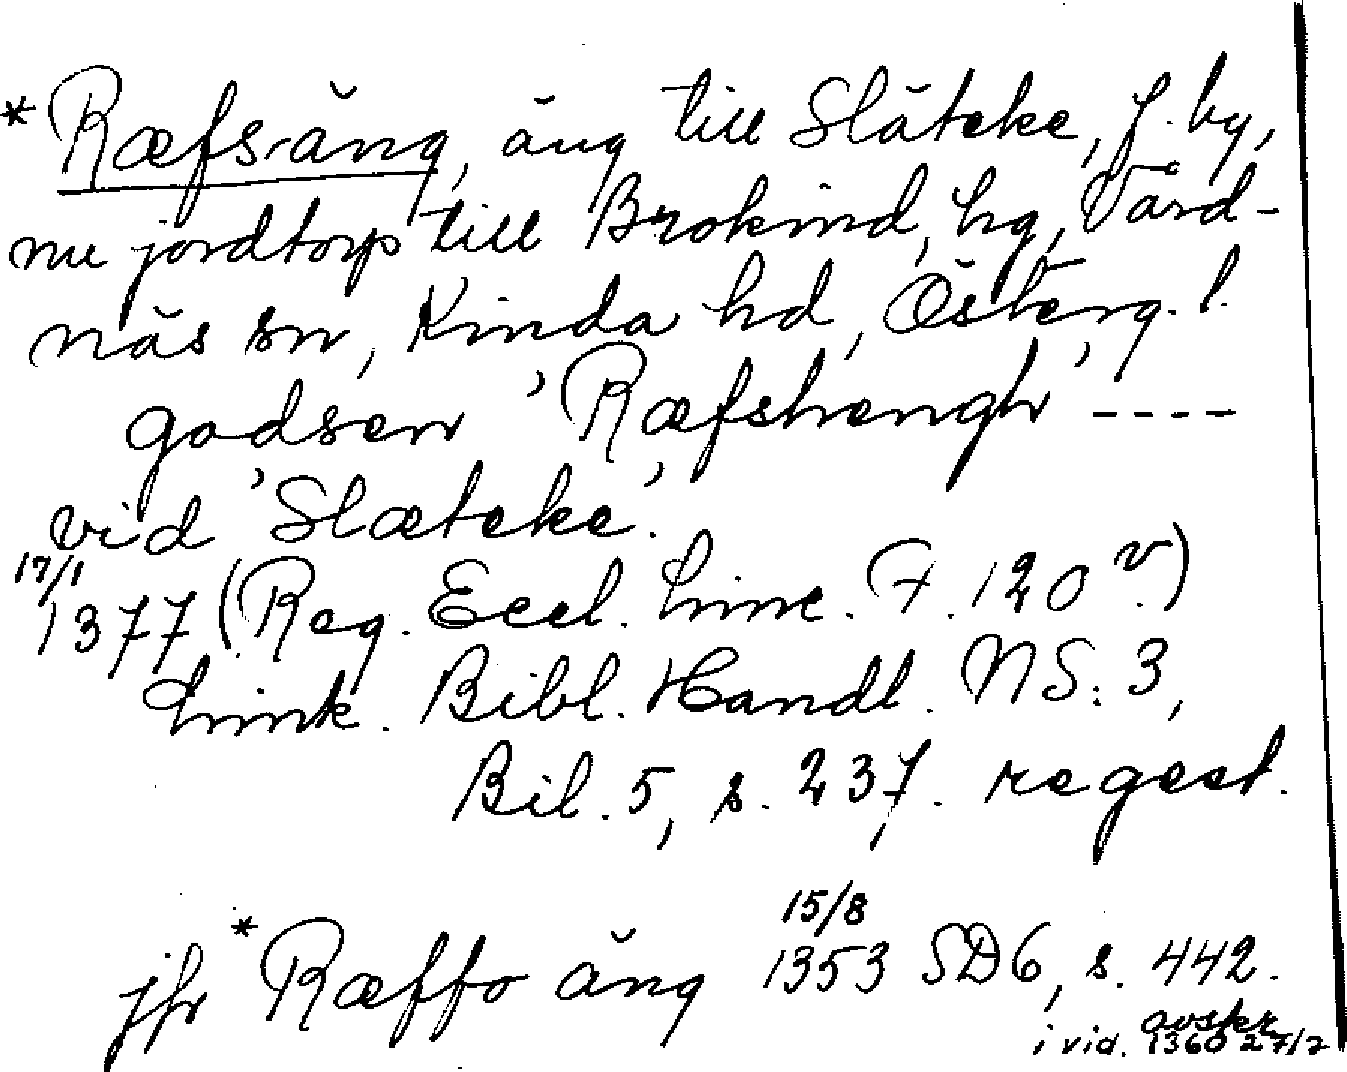 *Ræfs-äng, äng till Släteke, f. by,
nu jordtorp till Brokind, hg, Vård-
näs sn, Kinda hd, Österg. l.
godsen 'Ræfshengh' ----
vid 'Slæteke'.
17/1
1377 (Reg. Eccl. Linc. F. 120 v.)
Link. Bibl. Handl. NS: 3,
Bil. 5, s. 237. regest.
15/8
jfr *Ræffo äng 1353 SD6, s. 442.
avskr
i vid. 1360 27/2